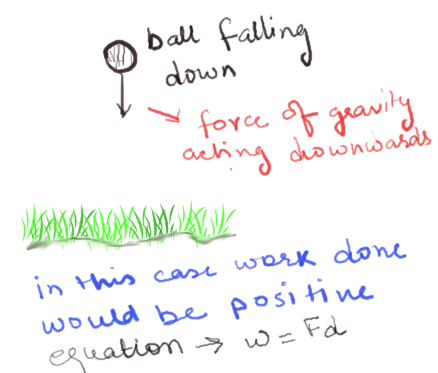 ball falling
down
force of gravity
acting downwards
in this case work done
would be positive
equation → w = Fd